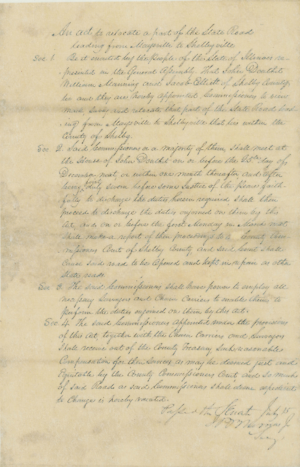 An Act to relocate a part of the State Road
leading from Maysville to Shelbyville
Sec 1 Be it enacted by the People of the State of Illinois re-
presented in the General Assembly That John Douthit
William Manning and Jacob Elliott of Shelby County
be and they are hereby appointed Commissioners to view
and relocate that part of the State Road lead-
ing from Maysville to Shelbyville that lies within the
County of Shelby
Sec 2 Said Commissioners or a majority of them shall meet at
the House of John Douthit on or before the day of
next or within one month thereafter and after
being duly sworn before some Justice of the peace faith-
fully to discharge the duties herein required shall then
proceed to discharge the duties required on them by this
act and on or before the first Monday in March next
shall make a report of their proceedings to the County Com-
missioners Court of Shelby County and said Court shall
cause said road to be opened and kept in repair as other
State roads
Sec 3 The said Commissioners shall have power to employ all
necessary Surveyors and Chain Carriers to enable them to
perform the duties required on them by this act
Sec 4 The said Commissioners appointed under the provisions
of this act together with the Chain Carriers and Surveyor
shall receive out of the County Treasury such reasonable
Compensation for their services as may be deemed just and
equitable by the County Commissioners Court and so much
of said Road as said Commissioners shall deem expedient
to change is hereby vacated
Senate July 15
Secy